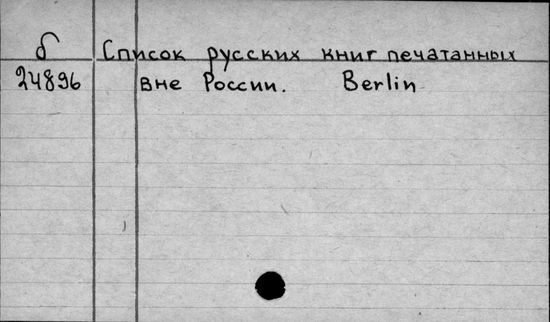 б Список русских книг печатанных
24896 вне России. Berlin